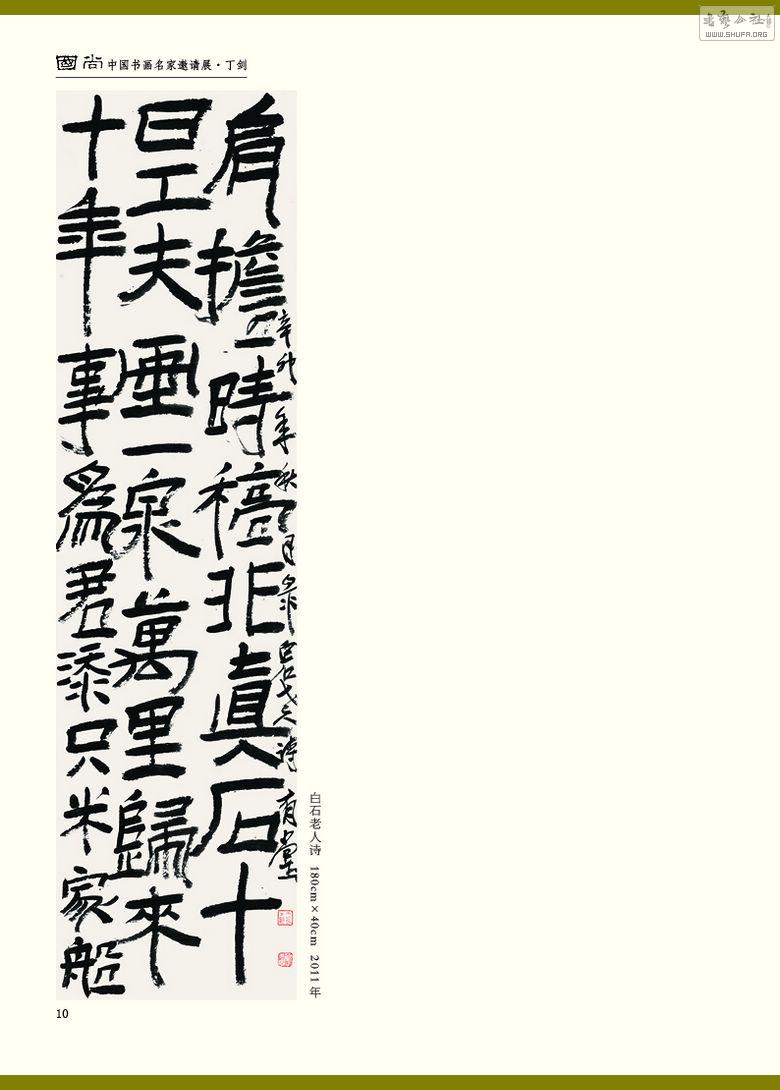 國尚 中国书画名家邀请展·丁剑
肩擔一時稿非真石十
日工夫畫一泉萬里歸來
十年事為君添只米家船
辛卯年秋月录白石老人诗 有堂
白石老人诗 180cm×40cm 2011年
10
书艺公社
WWW.SHUFA.ORG